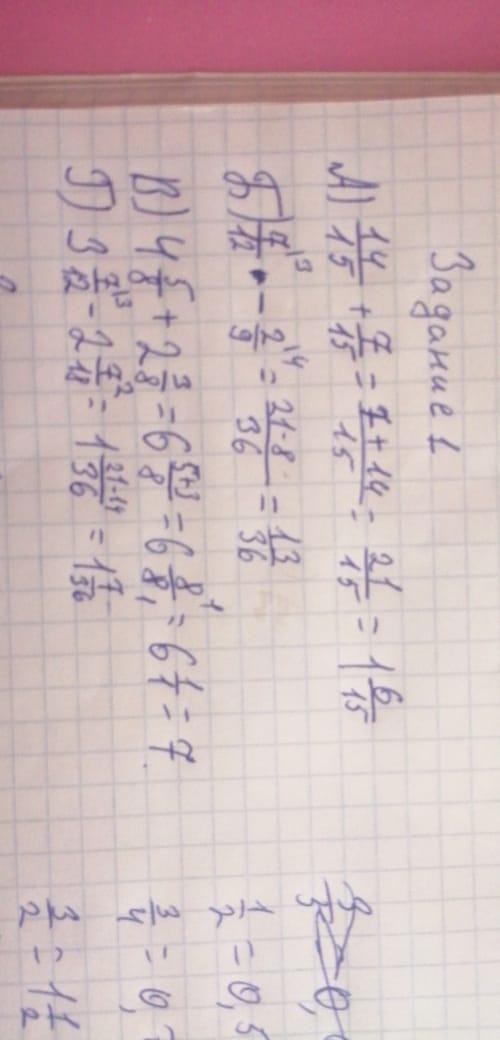 Задание 1
А) 14/15 + 7/15 = 7+14/15 = 21/15 = 1 6/15
Б) 7\3/12 - 2\4/9 = 21-8/36 = 13/36
В) 4 5/8 + 2 3/8 = 6 5+3/8 = 6 8/8 = 6 1/1 = 7
Г) 3 7\3/12 - 2 7\2/18 = 1 21-14/36 = 1 7/36
1/2 = 0,5
3/4 = 0,7
3/2 = 1 1/2